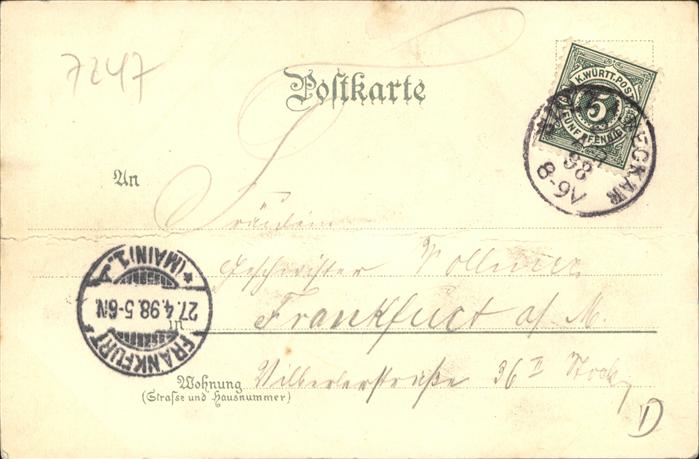 7247
Postkarte
K. WÜRTT. POST
5
FÜNF PFENNIG
NECKAR
98
8-9V
An
Fräulein
Geschwister Vollmer
Frankfurt a/M.
in
Vilbelerstraße 36 II Stock
Wohnung
(Strasse und Hausnummer)
FRANKFURT
27.4.98.5-6N
*(MAIN)1.
D